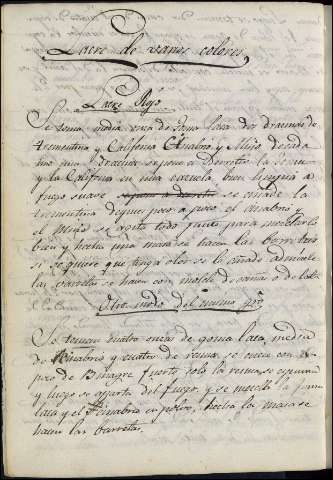 Lacre de varios colores
Lacre Rojo
Se toma media onza de Goma laca dos dracmas de
trementina y Califonia Cinabro y Minio de cada
uno una dracma se pone a derretir la Goma
y la Califonia en una cazuela bien limpia a
fuego suave se pone a derretir se añade la
trementina despues poco a poco el cinabrio y
el Minio se agita todo junto para mezclarlo
bien y hecha una masa se hacen las barretas
si se quiere que tenga olor se le añade
las barretas se hacen con molde de
Otro modo del mismo
Se toman cuatro onzas de goma laca, media
de Cinabrio y cuatro de resina, se cuece con un
poco de Vinagre fuerte solo la resina, se espuma
y luego se aparta del fuego, y se mezcla la goma
laca y el Cinabrio en polvo, hecha la masa se
hacen las barretas.